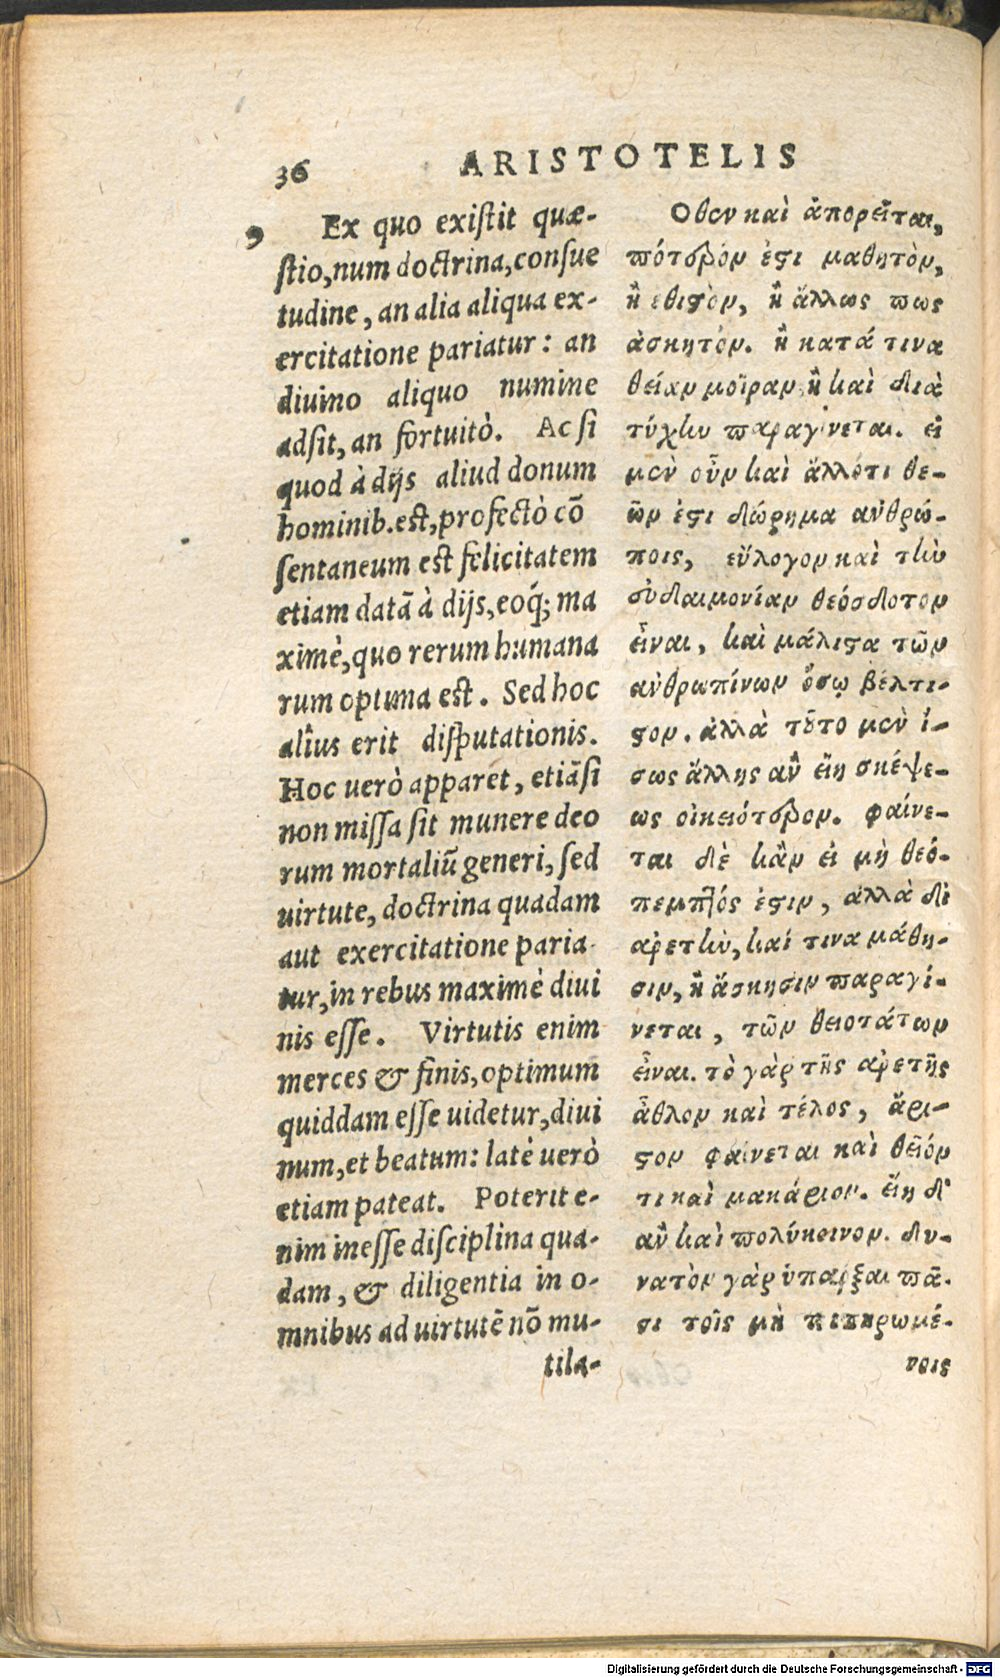 36 ARISTOTELIS
9 Ex quo existit quæ-
stio, num doctrina, consue
tudine, an alia aliqua ex-
ercitatione pariatur: an
diuino aliquo numine
adsit, an fortuitò. Ac si
quod à dijs aliud donum
hominib. est, profectò cō
sentaneum est felicitatem
etiam datā à dijs, eoq́; ma
ximè, quo rerum humana
rum optima est. Sed hoc
alîus erit disputationis.
Hoc uerò apparet, etiāsi
non missa sit munere deo
rum mortaliū generi, sed
uirtute, doctrina quadam
aut exercitatione paria
tur, in rebus maximè diui
nis esse. Virtutis enim
merces & finis, optimum
quiddam esse uidetur, diui
num, et beatum: latè uerò
etiam pateat. Poterit e-
nim inesse disciplina qua-
dam, & diligentia in o-
mnibus ad uirtutē nō mu-
tila-
Οθεν καὶ ἀπορεῖται,
πότερόν ἐστι μαθητὸν,
ἢ ἐθιστὸν, ἢ ἄλλως πως
ἀσκητόν. ἢ κατά τινα
θείαν μοῖραν ἢ καὶ διὰ
τύχην παραγίνεται. εἰ
μὲν οὖν καὶ ἄλλό τι θε-
ῶν ἐστι δώρημα ἀνθρώ-
ποις, εὔλογον καὶ τὴν
εὐδαιμονίαν θεόσδοτον
εἶναι, καὶ μάλιστα τῶν
ἀνθρωπίνων ὅσῳ βέλτι-
στον. ἀλλὰ τοῦτο μὲν ἴ-
σως ἄλλης ἂν εἴη σκέψε-
ως οἰκειότερον. φαίνε-
ται δὲ κἂν εἰ μὴ θεό-
πεμπτός ἐστιν, ἀλλὰ δι
ἀρετὴν, καί τινα μάθη-
σιν, ἢ ἄσκησιν παραγί-
νεται, τῶν θειοτάτων
εἶναι. τὸ γὰρ τῆς ἀρετῆς
ἆθλον καὶ τέλος, ἄρι-
στον φαίνεται καὶ θεῖόν
τι καὶ μακάριον. εἴη δ'
ἂν καὶ πολύκοινον. δυ-
νατὸν γὰρ ὑπάρξαι πᾶ-
σι τοῖς μὴ πεπηρωμέ-
νοις
Digitalisierung gefördert durch die Deutsche Forschungsgemeinschaft - DFG